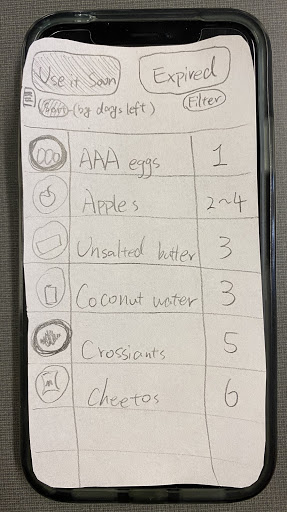 Use it Soon
Expired
Sort (by days left)
Filter
AAA eggs 1
Apples 2~4
Unsalted butter 3
Coconut water 3
Crossiants 5
Cheetos 6